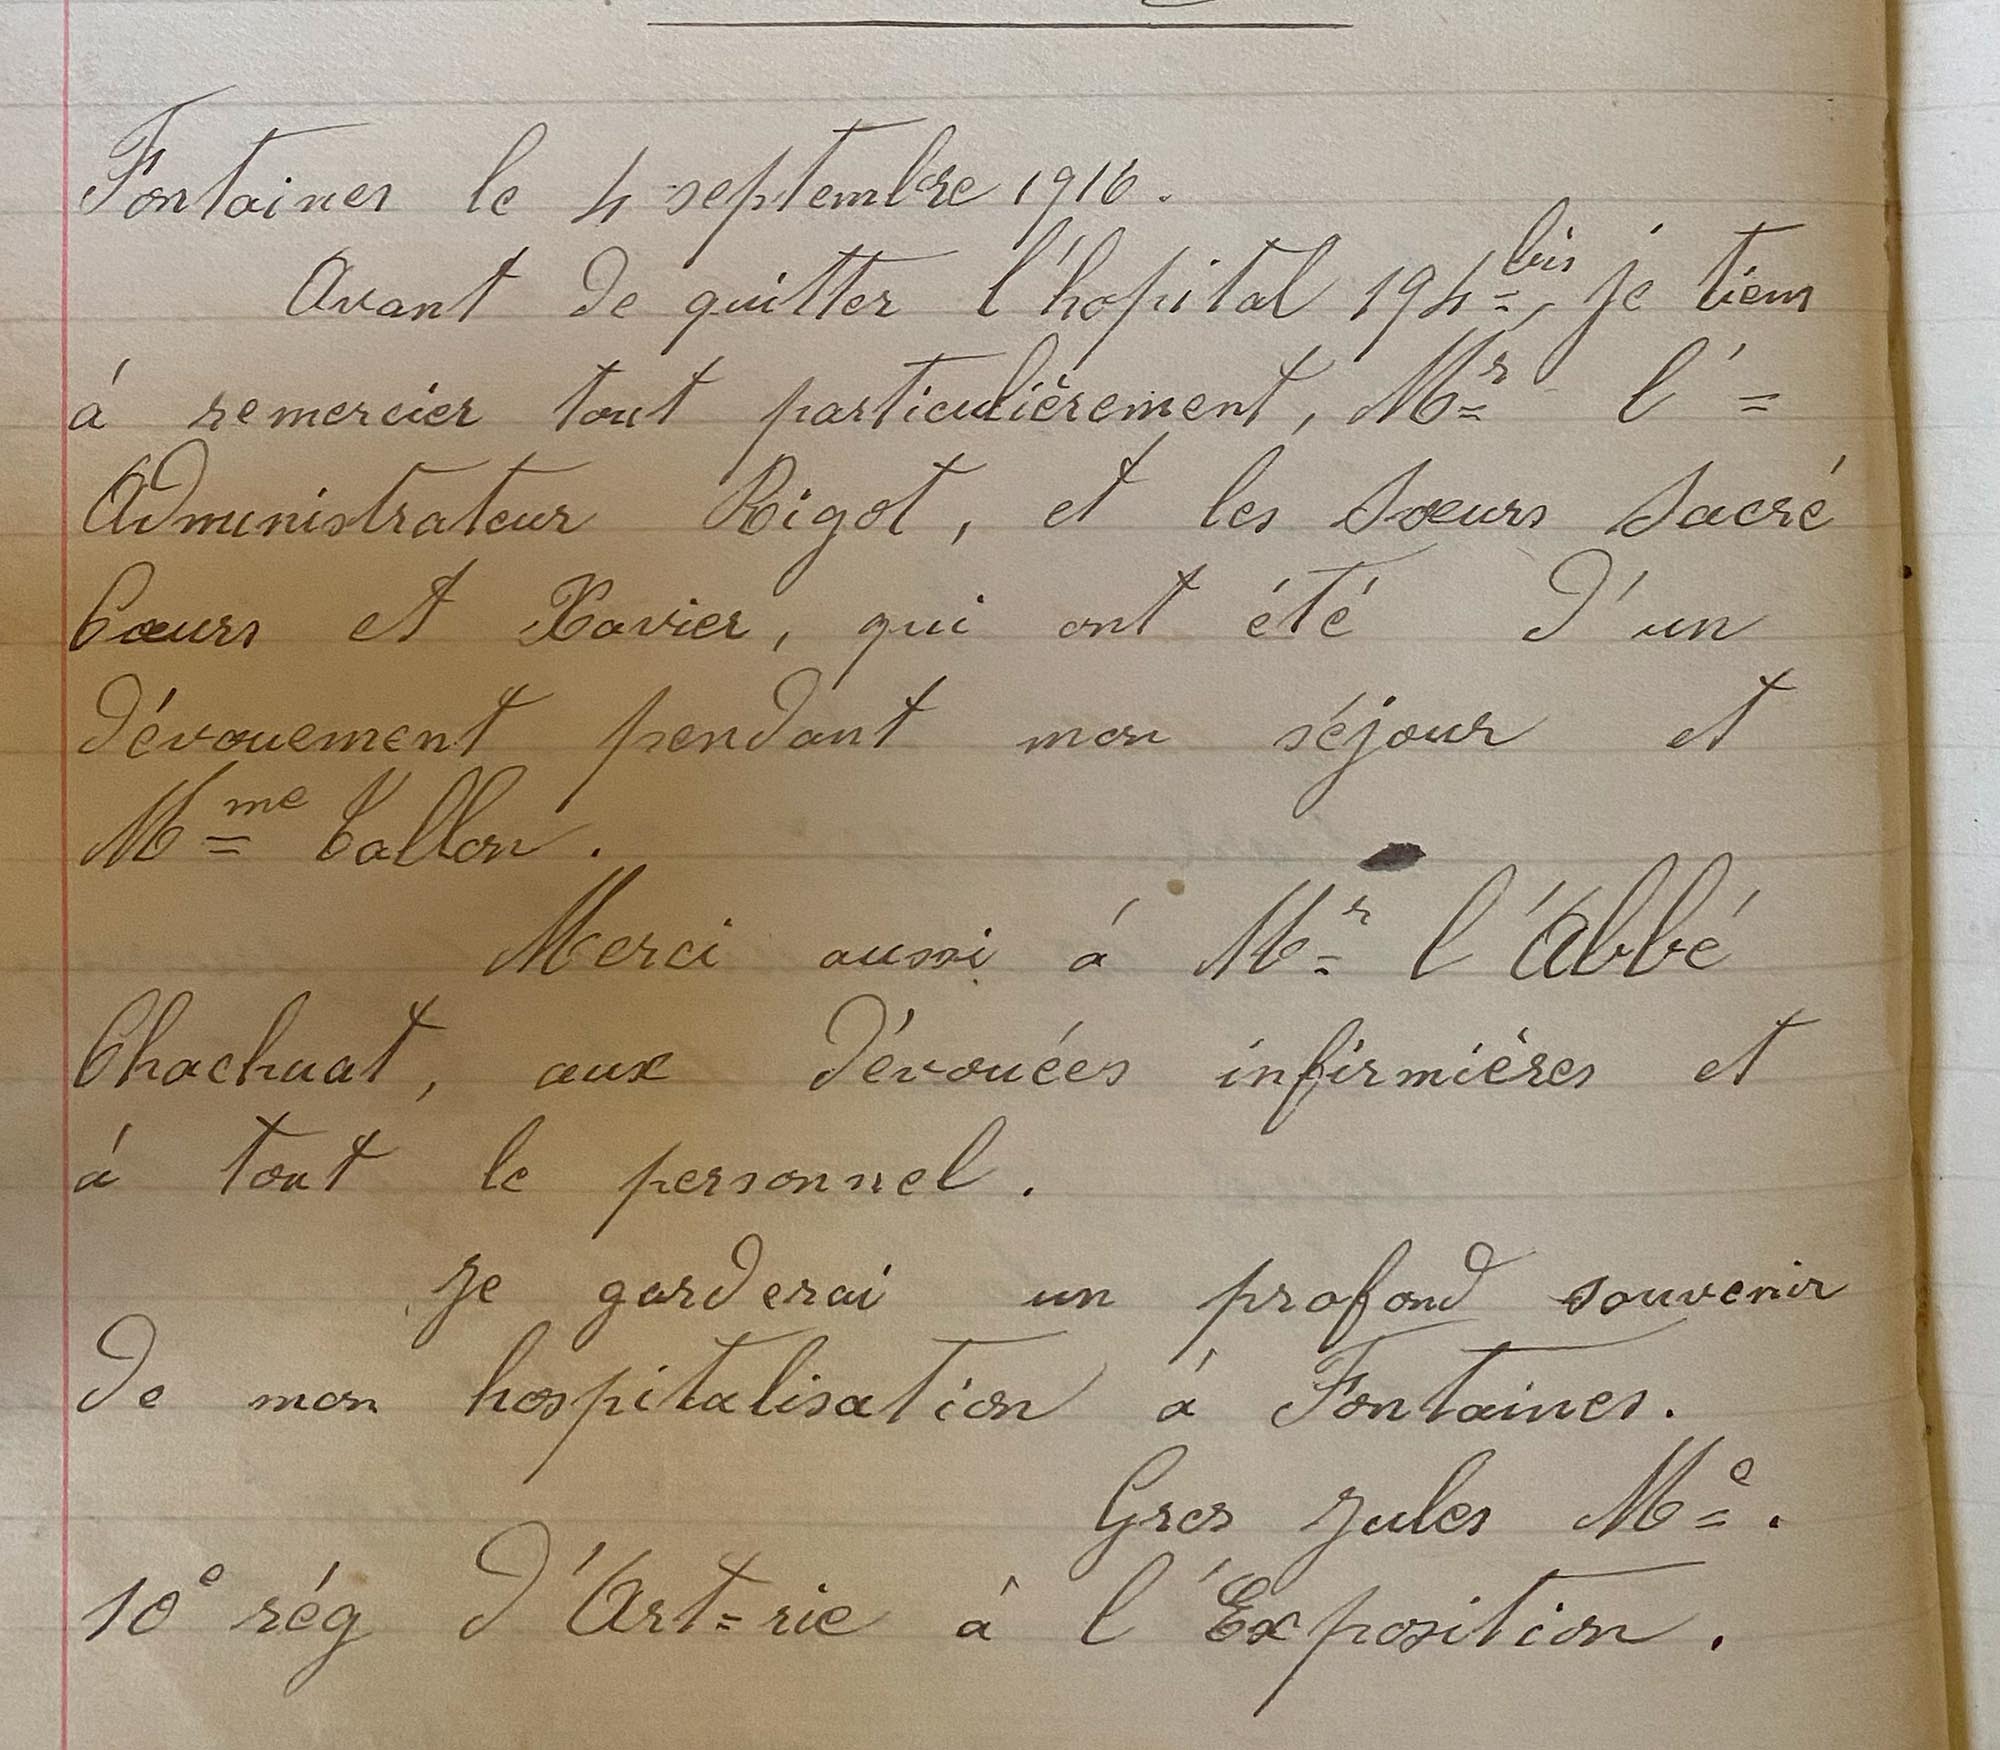 Fontaines le 4 septembre 1916.
Avant de quitter l'hopital 194 bis, je tiens
à remercier tout particulièrement, Mr l'=
Administrateur Rigot, et les Sœurs Sacré
Cœurs et Xavier, qui ont été d'un
dévouement pendant mon séjour et
Mme Callon.
Merci aussi à Mr l'Abbé
Chachuat, aux dévouées infirmières et
à tout le personnel.
Je garderai un profond souvenir
de mon hospitalisation à Fontaines.
Gros Jules Me.
10e rég d'Art=rie à l'Exposition.